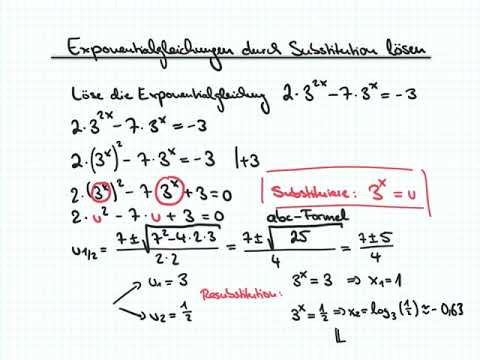 Exponentialgleichungen durch Substitution lösen
Löse die Exponentialgleichung 2·3^{2x} − 7·3^x = −3
2·3^{2x} − 7·3^x = −3
2·(3^x)^2 − 7·3^x = −3 |+3
2·(3^x)^2 − 7·3^x + 3 = 0 Substituiere: 3^x = u
2·u^2 − 7·u + 3 = 0 abc-Formel
u_{1/2} = \frac{7 ± \sqrt{7^2 − 4·2·3}}{2·2} = \frac{7 ± \sqrt{25}}{4} = \frac{7 ± 5}{4}
u_1 = 3 3^x = 3 ⇒ x_1 = 1
Resubstitution:
u_2 = \frac{1}{2} 3^x = \frac{1}{2} ⇒ x_2 = log_3(\frac{1}{2}) ≈ −0,63
𝕃